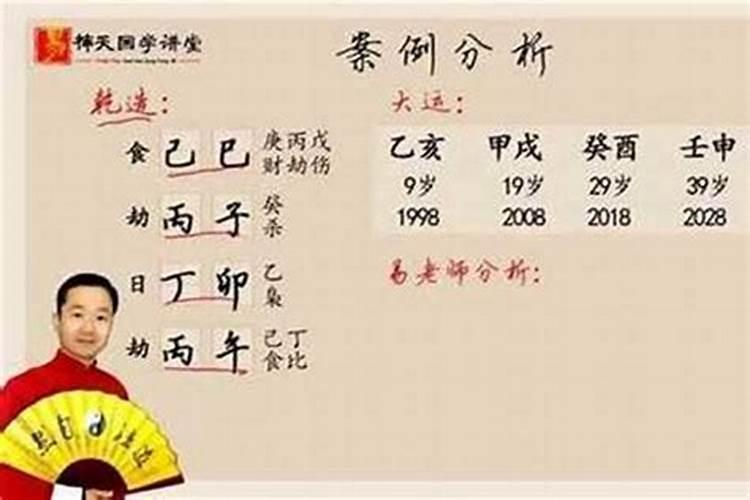 易 禅天国学讲堂
案例分析
乾造：
食 己 巳 庚 丙 戊
财 劫 伤
劫 丙 子 癸
杀
日 丁 卯 乙
枭
劫 丙 午 己 丁
食 比
大运：
乙亥 甲戌 癸酉 壬申
9岁 19岁 29岁 39岁
1998 2008 2018 2028
易老师分析：